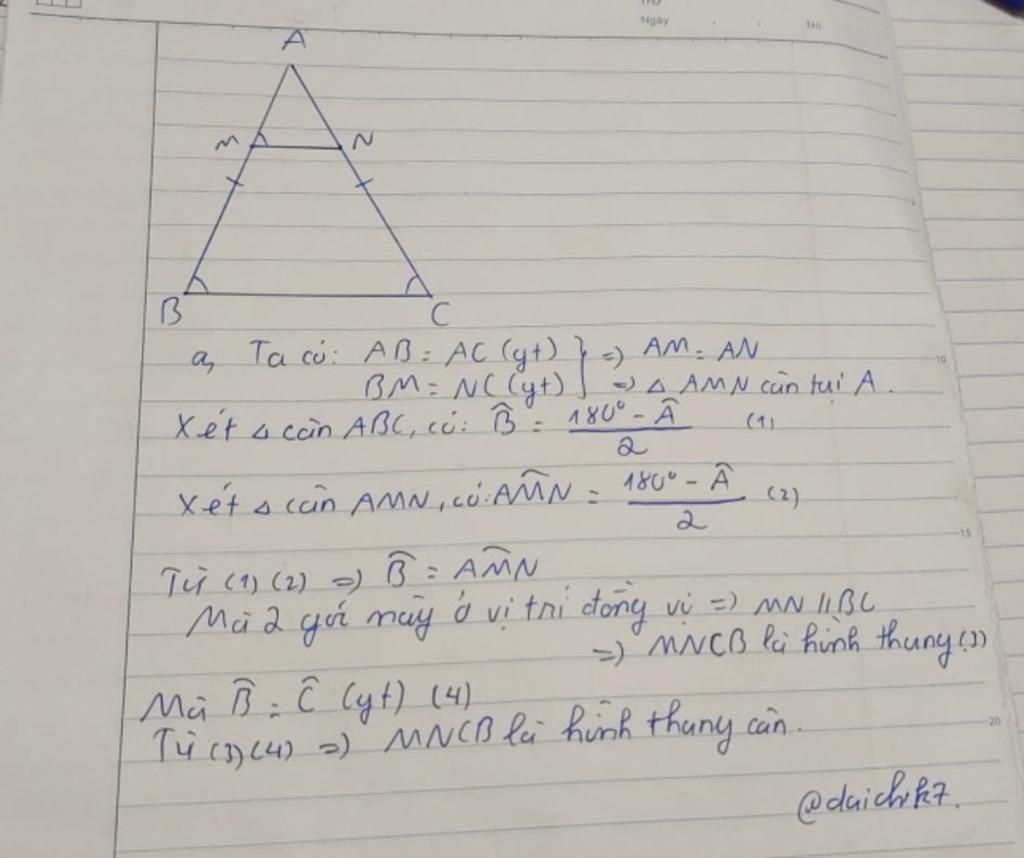 Thứ
Ngày . . No.
A
M N
B C
a, Ta có: AB = AC (gt) } => AM = AN
BM = NC (gt) } => △ AMN cân tại A.
Xét △ cân ABC, có: B̂ = (180° - Â)/2 (1)
Xét △ cân AMN, có: AM̂N = (180° - Â)/2 (2)
Từ (1) (2) => B̂ = AM̂N
Mà 2 góc này ở vị trí đồng vị => MN // BC
=> MNCB là hình thang (3)
Mà B̂ = Ĉ (gt) (4)
Từ (3) (4) => MNCB là hình thang cân.
@daichk7.
5
10
15
20